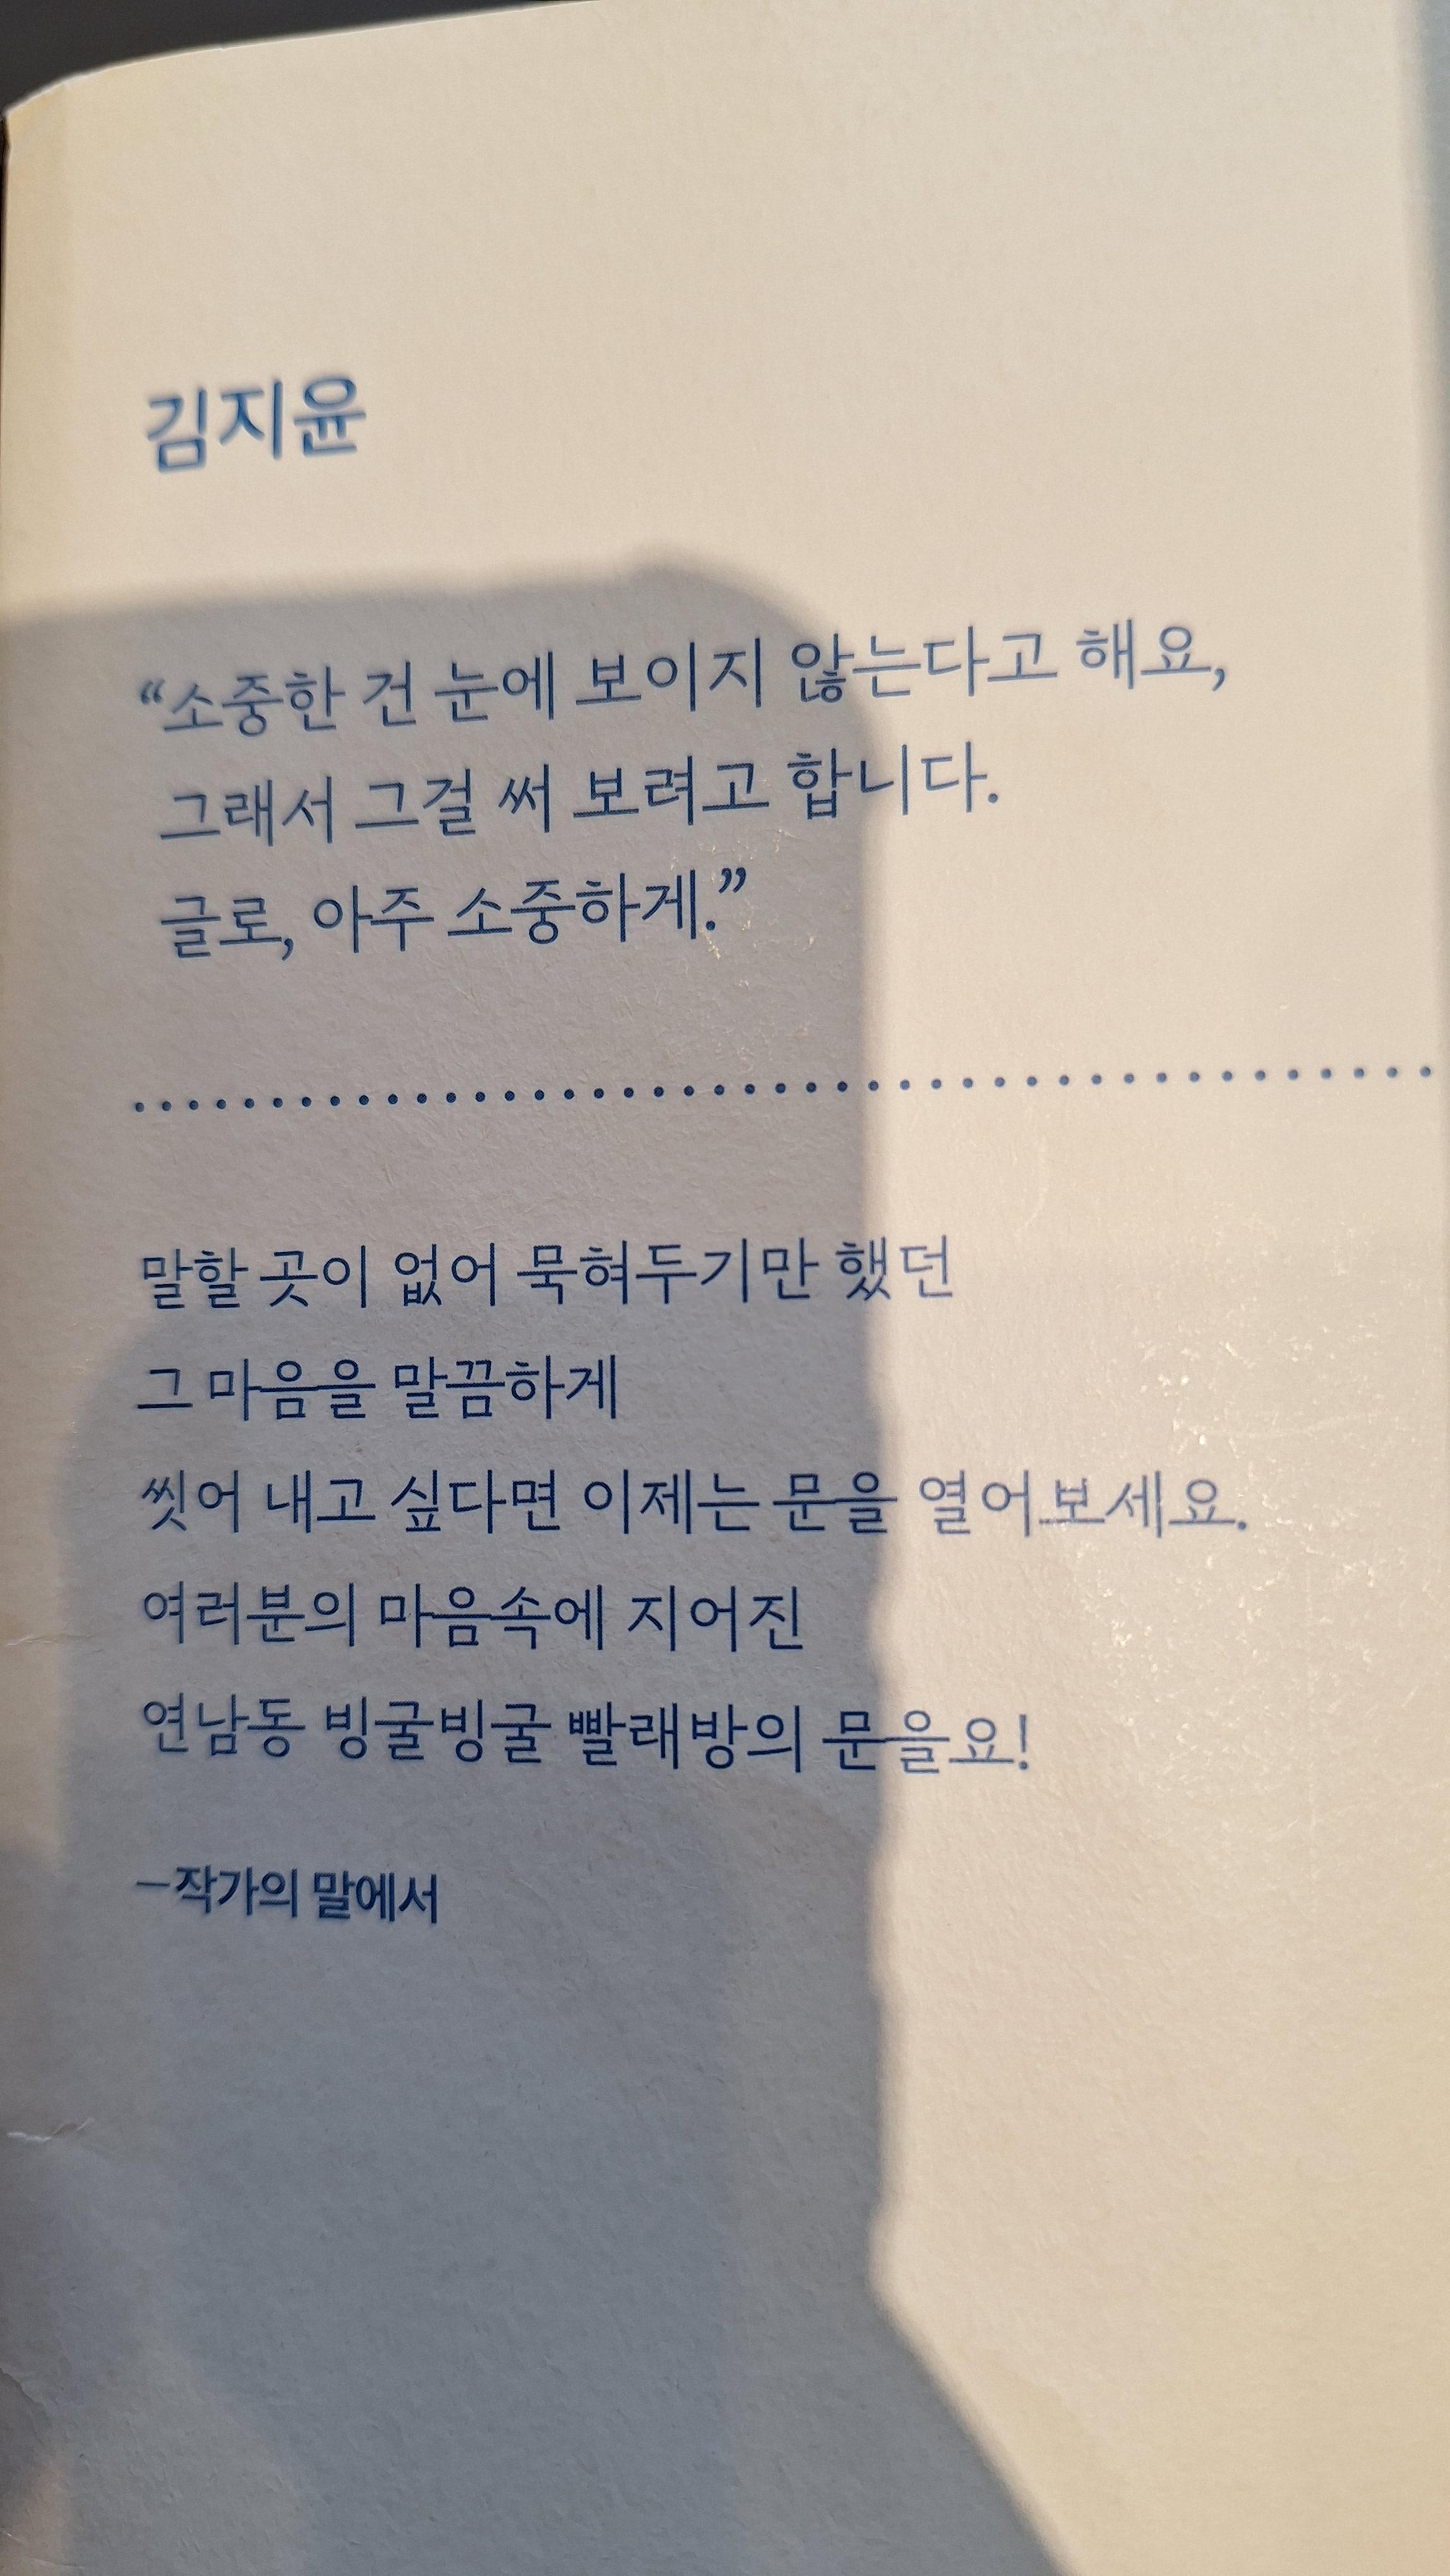 김지윤
“소중한 건 눈에 보이지 않는다고 해요,
그래서 그걸 써 보려고 합니다.
글로, 아주 소중하게.”
말할 곳이 없어 묵혀두기만 했던
그 마음을 말끔하게
씻어 내고 싶다면 이제는 문을 열어보세요.
여러분의 마음속에 지어진
연남동 빙굴빙굴 빨래방의 문을요!
—작가의 말에서